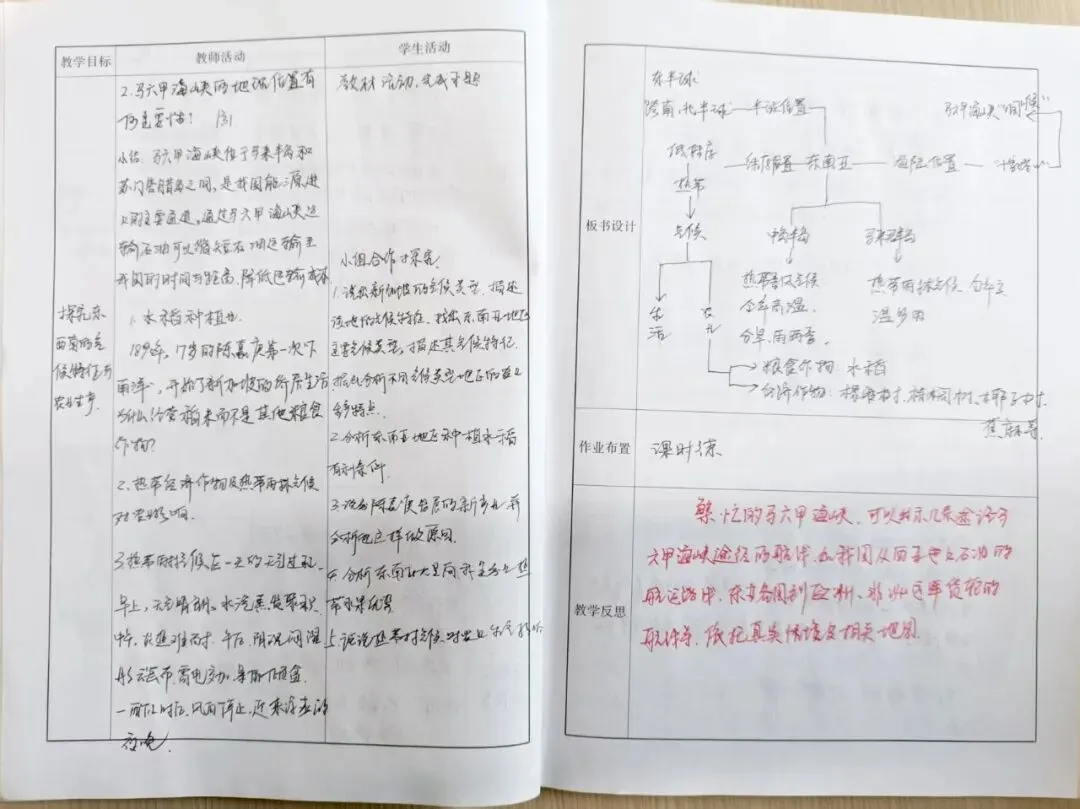 教学目标 教师活动 学生活动
2.马六甲海峡的地理位置有
何重要性?
小结:马六甲海峡位于马来半岛和
苏门答腊岛之间,是我国能源进
口的主要通道,通过马六甲海峡运
输石油可以缩短石油运输至
我国的时间与距离,降低运输成本
1.水稻种植业
189 年,17岁的陈嘉庚第一次下
南洋,开始了新加坡的 生活
为什么经营稻米而不是其他粮食
作物?
2.热带经济作物及热带雨林气候
对农业影响.
3.热带雨林气候区一天的天气过程.
早上,天气晴朗,水汽蒸发聚积
中午,炎热难耐,午后,阴沉闷湿
彤云密布,雷电交加,暴雨倾盆
一两个小时后,风雨停止,迎来凉爽的
夜晚.
探究东
南亚的气
候特征与
农业生产
教材活动,完成习题
小组合作探究
1.说出新加坡的气候类型,描述
该地的气候特征.找出东南亚地区
主要气候类型,描述其气候特征.
据此分析不同气候类型地区的农业
生产特点.
2.分析东南亚地区种植水稻
有利条件.
3.说出陈嘉庚 的 并
分析他这样做原因.
4.分析东南亚大量向我国出口热
带水果优势
5.说说热带雨林气候对农业生产影响
板书设计
东半球
跨南、北半球 半球位置 马六甲海峡"咽喉"
低纬度 纬度位置 东南亚 海陆位置 十字路口
热带
气候 中南半岛 马来群岛
热带季风气候 热带雨林气候 全年高
全年高温 温多雨
分旱、雨两季
生活 农业
粮食作物 水稻
经济作物:橡胶树、油棕树、椰子树、
蕉麻等
作业布置 课时练
教学反思
繁忙的马六甲海峡,可以展示几条途经马
六甲海峡途经的船舶,如我国从西亚进口石油的
航运路线,东亚各国到欧洲、非洲远洋货轮的
航线等,依托真实情境及相关地图.